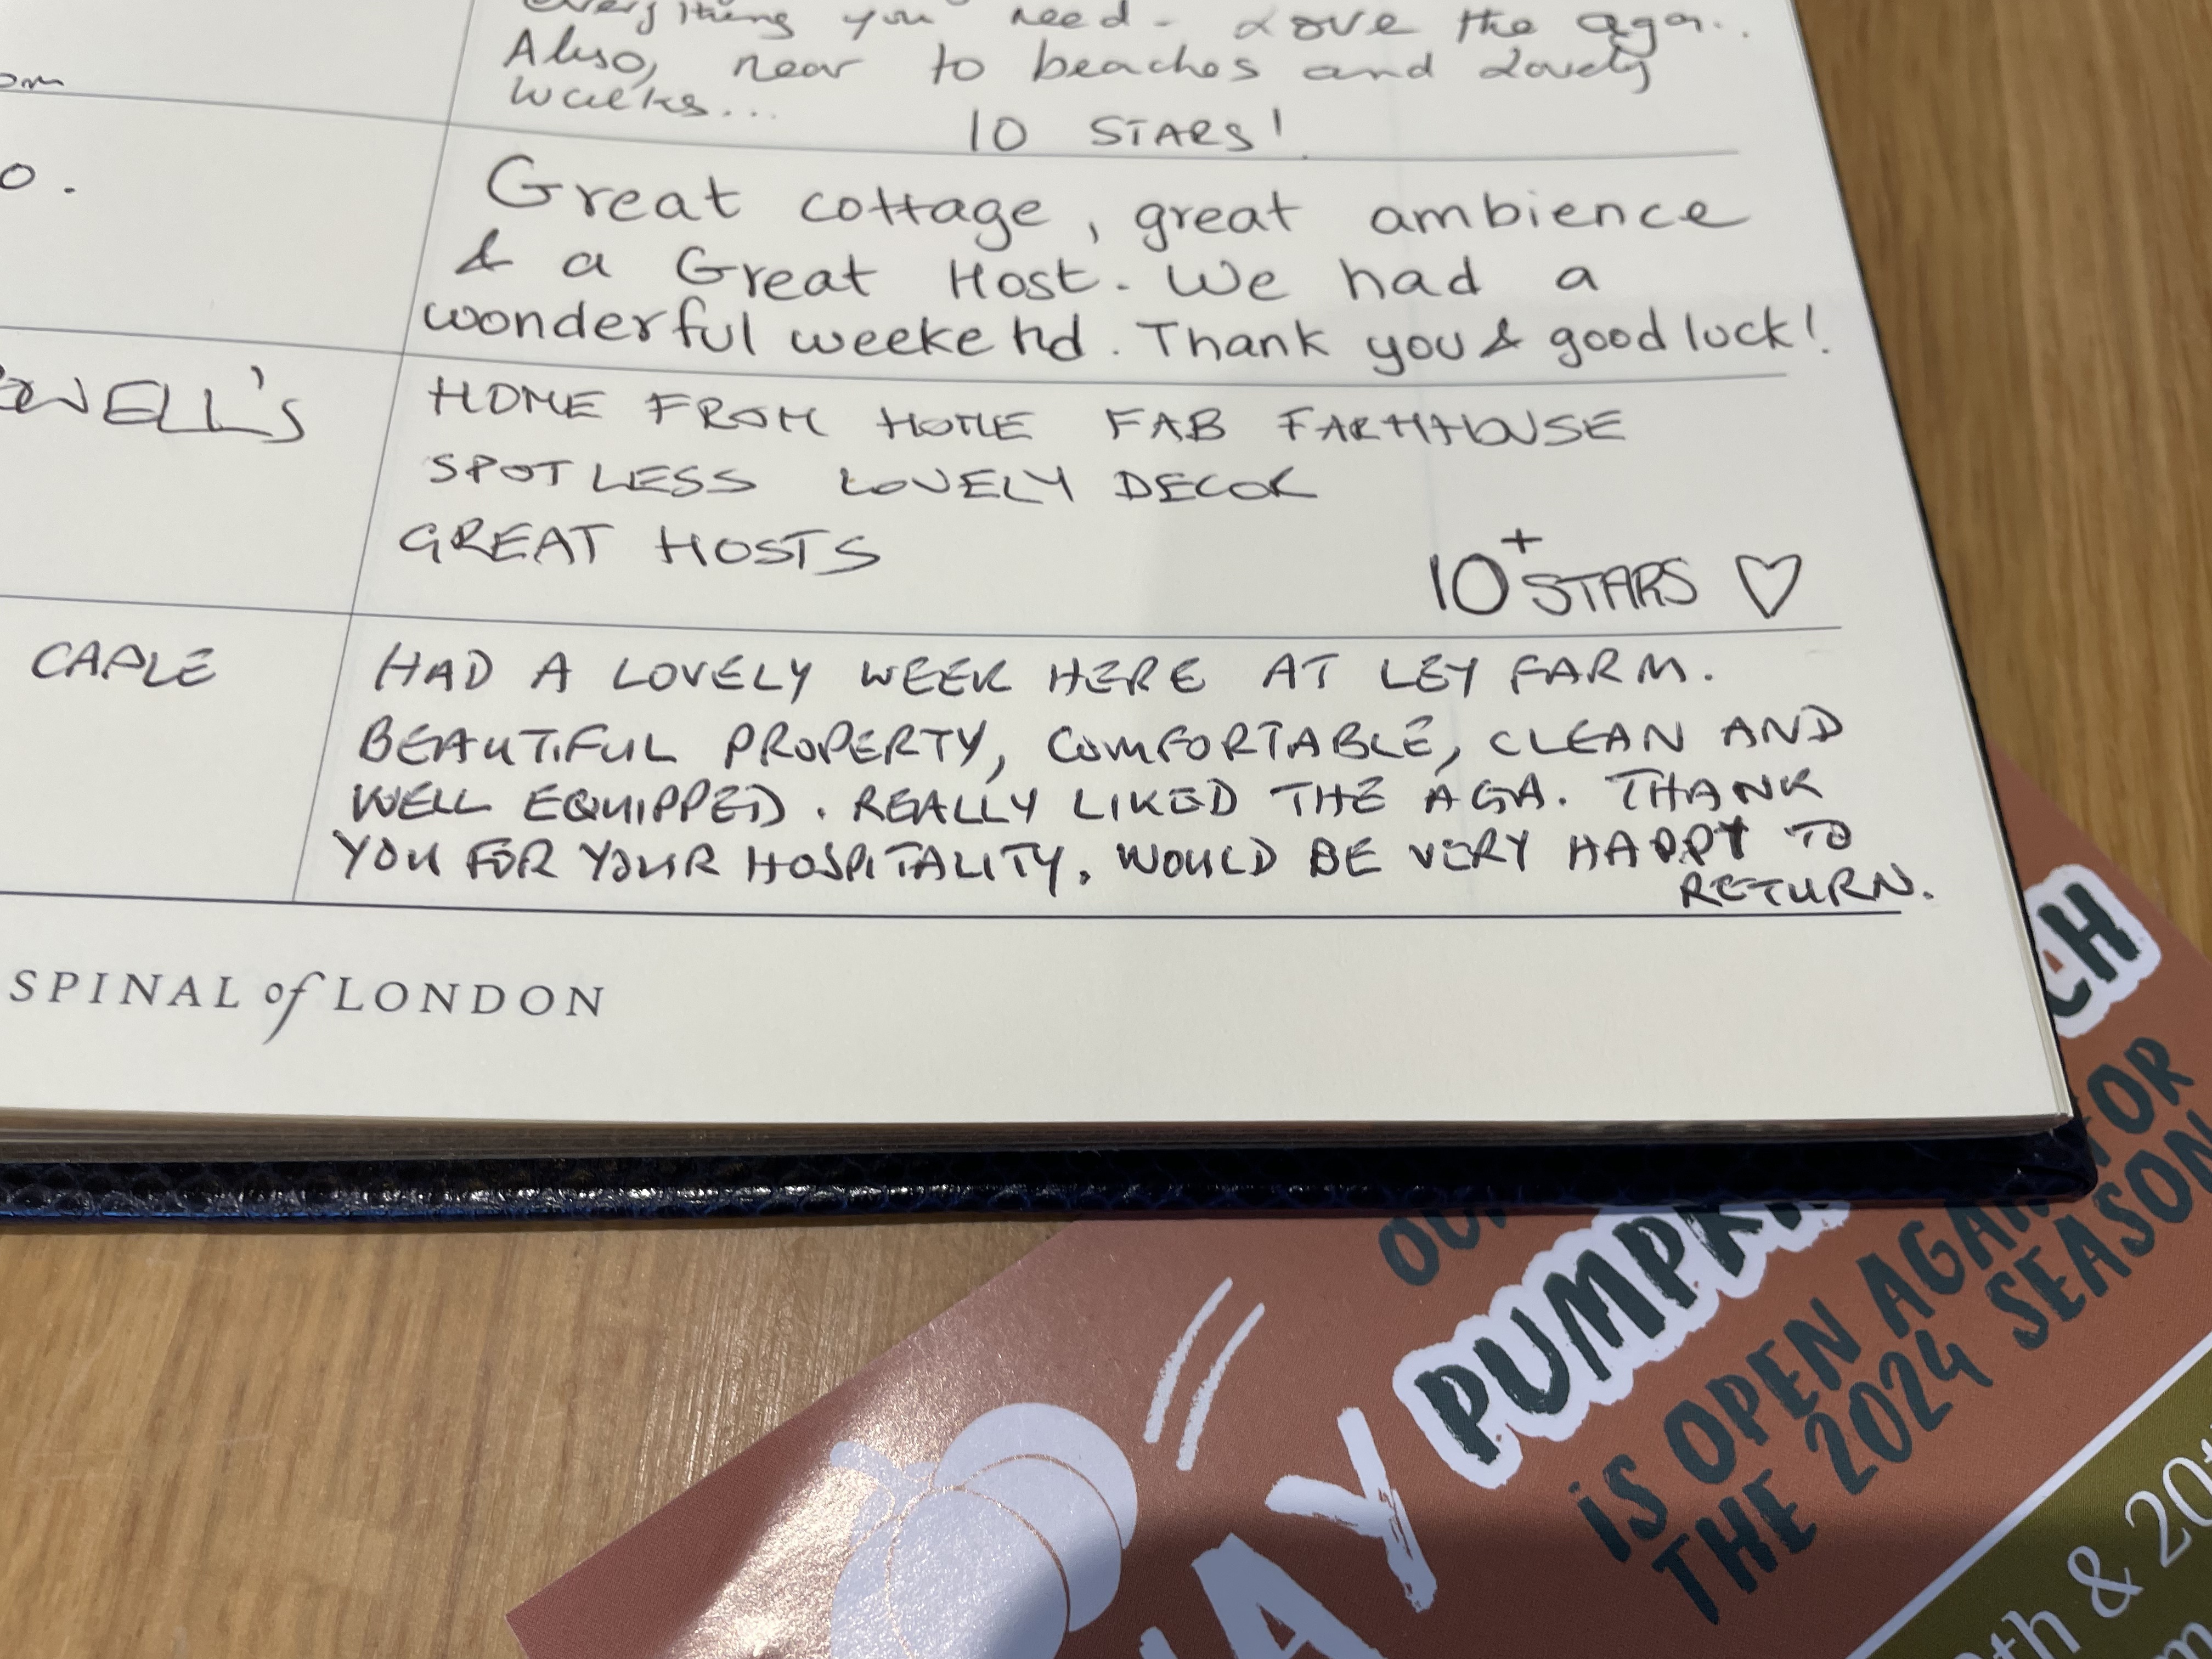 everything you need - Love the aga..
Also, near to beaches and lovely
walks...
10 STARS!
Great cottage, great ambience
& a Great Host. We had a
wonderful weekend. Thank you & good luck!
HOME FROM HOME FAB FARMHOUSE
SPOTLESS LOVELY DECOR
GREAT HOSTS
10+ STARS ♡
CAPLE
HAD A LOVELY WEEK HERE AT LEY FARM.
BEAUTIFUL PROPERTY, COMFORTABLE, CLEAN AND
WELL EQUIPPED. REALLY LIKED THE AGA. THANK
YOU FOR YOUR HOSPITALITY. WOULD BE VERY HAPPY TO
RETURN.
ASPINAL of LONDON
PUMPK
IS OPEN AGAIN FOR
THE 2024 SEASON
& 20t